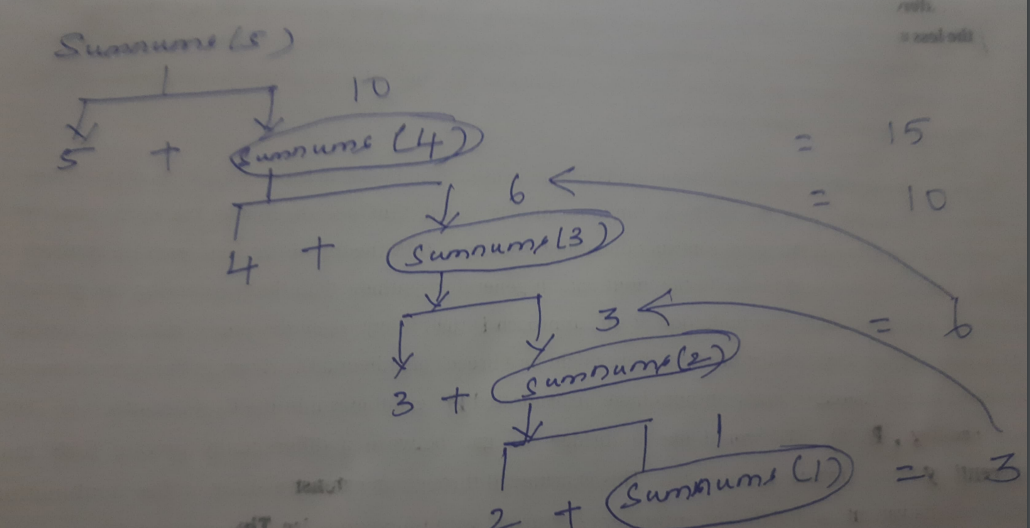 Sumnums(5)
10
5 + Sumnums(4) = 15
6 = 10
4 + Sumnums(3)
3 = 6
3 + Sumnums(2)
1
2 + Sumnums(1) = 3